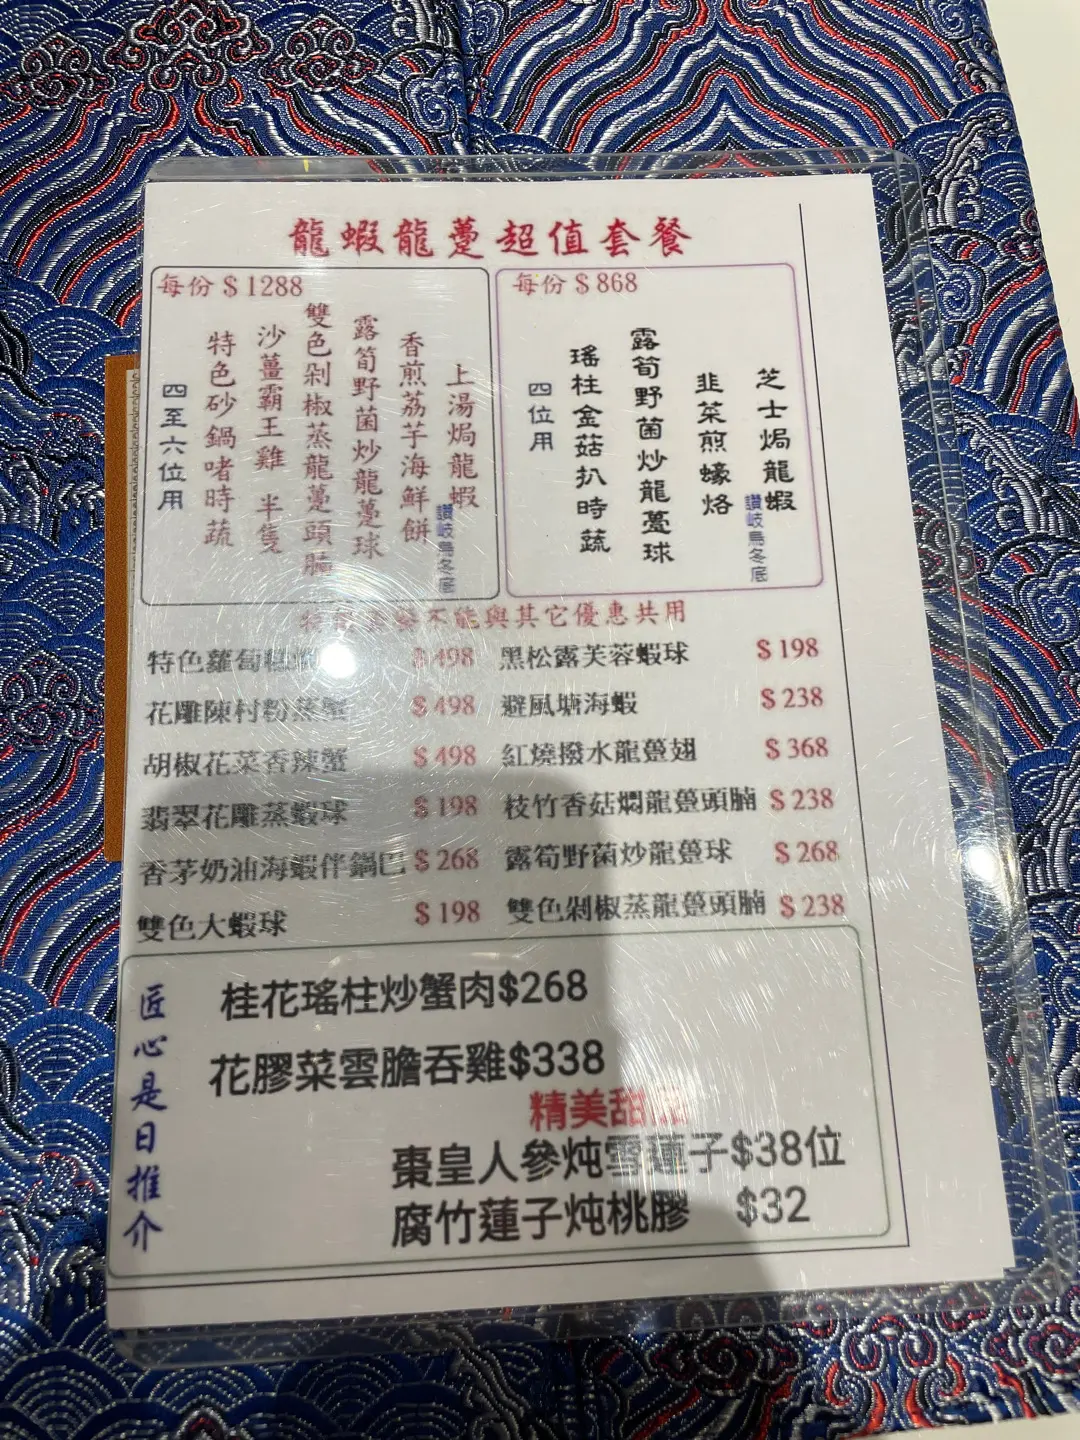 龍蝦龍躉超值套餐
每份$1288
上湯焗龍蝦
讚岐烏冬底
香煎荔芋海鮮餅
露筍野菌炒龍躉球
雙色剁椒蒸龍躉頭腩
沙薑霸王雞 半隻
特色砂鍋啫時蔬
四至六位用
每份$868
芝士焗龍蝦
讚岐烏冬底
韭菜煎蠔烙
露筍野菌炒龍躉球
瑤柱金菇扒時蔬
四位用
不能與其它優惠共用
特色蘿蔔 $498
黑松露芙蓉蝦球 $198
花雕陳村粉蒸蟹 $498
避風塘海蝦 $238
胡椒花菜香辣蟹 $498
紅燒撥水龍躉翅 $368
翡翠花雕蒸蝦球 $198
枝竹香菇燜龍躉頭腩 $238
香茅奶油海蝦伴鍋巴 $268
露筍野菌炒龍躉球 $268
雙色大蝦球 $198
雙色剁椒蒸龍躉頭腩 $238
匠心是日推介
桂花瑤柱炒蟹肉$268
花膠菜雲膽吞雞$338
精美甜品
棗皇人參炖雪蓮子$38位
腐竹蓮子炖桃膠 $32